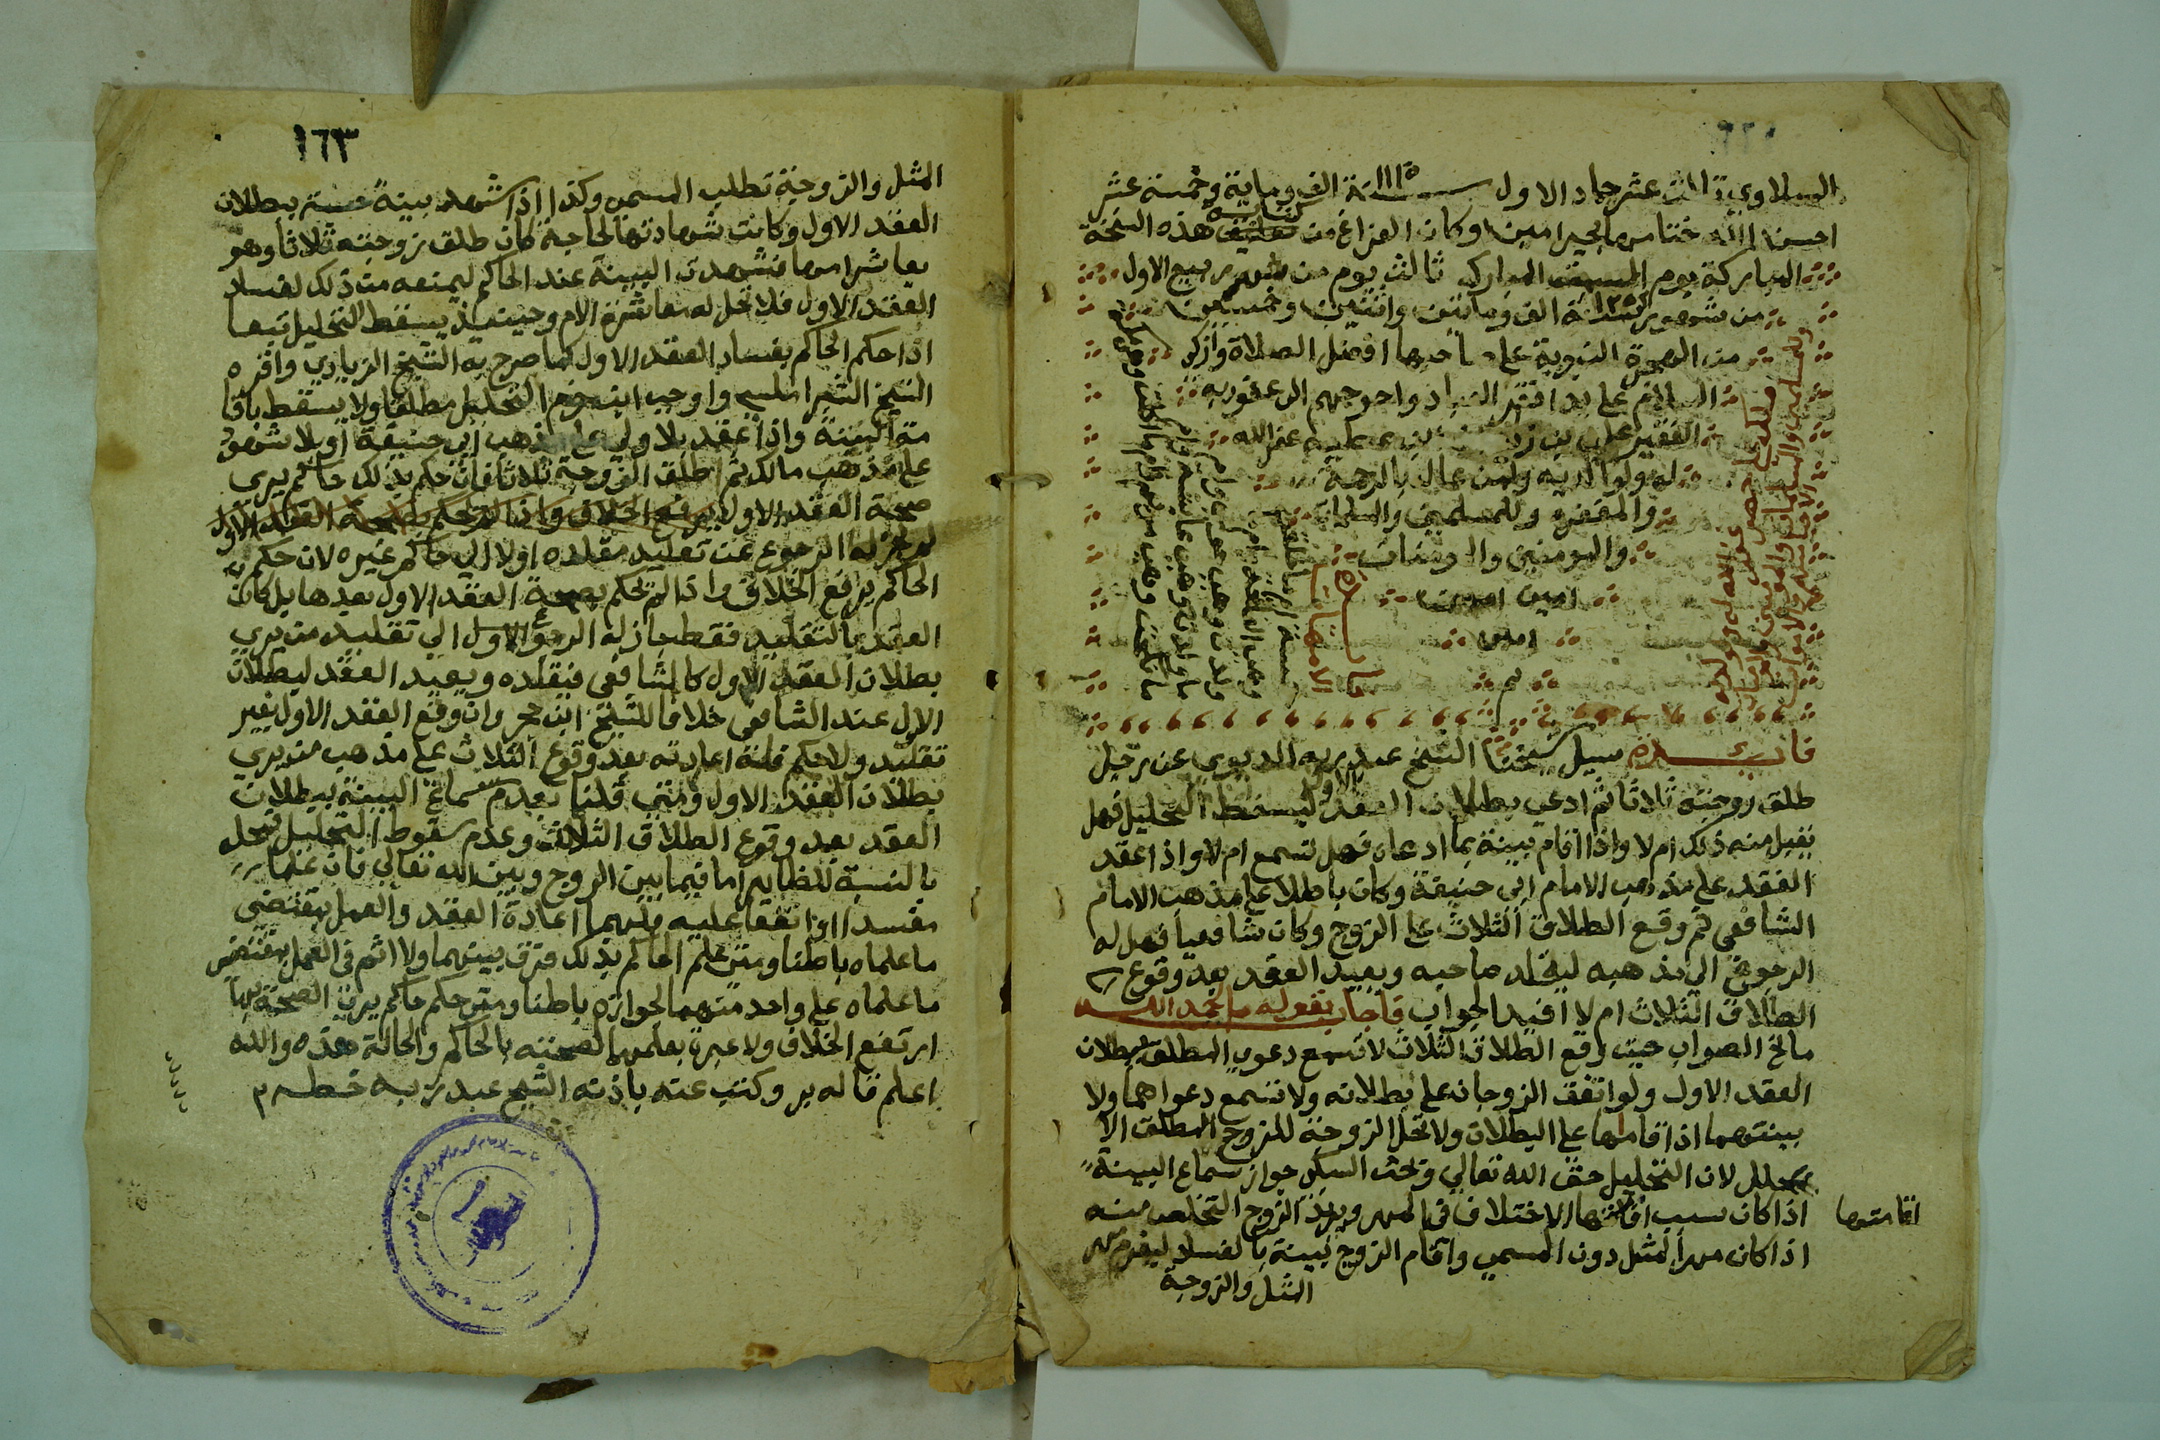 السلاوي ثالث عشر جماد الاول سنة ١١١٥ الف وماية وخمسة عشر
احسن الله ختامها بخير امين وكان الفراغ من كتابة هذه النسخة
المباركة يوم السبت المبارك ثالث يوم من شهر ربيع الاول
من شهور سنة ١٢٥٢ الف وماتين واثنين وخمسين
من الهجرة النبوية على صاحبها افضل الصلاة وازكى
السلام على يد افقر العباد واحوجهم الى عفو ربه
الفقير علي بن عطيه غفر الله
له ولوالديه ولمن دعا له بالرحمة
والمغفرة وللمسلمين والمسلمات
والمومنين والمومنات
امين امين
امين
تم
فايدة سيل شيخنا الشيخ عبد ربه الديوي عن رجل
طلق زوجته ثلاثا ثم ادعى بطلان العقد الاول ليسقط التحليل فهل
يقبل منه ذلك ام لا واذا اقام بينة بما ادعاه فهل تسمع ام لا واذا عقد
العقد على مذهب الامام ابي حنيفة وكان باطلا على مذهب الامام
الشافعي ثم وقع الطلاق الثلاث على الزوج وكان شافعيا فهل له
الرجوع الى مذهبه ليقلد صاحبه ويعيد العقد بعد وقوع
الطلاق الثلاث ام لا افيد الجواب فاجاب بقوله الحمد لله
مانح الصواب حيث وقع الطلاق الثلاث لا تسمع دعوى المطلق ببطلان
العقد الاول ولو اتفق الزوجان على بطلانه ولا تسمع دعواهما ولا
بينتهما اذا اقامها على البطلان ولا تحل الزوجة للزوج المطلق الا
بمحلل لان التحليل حق الله تعالى وبحث السبكي جواز سماع البينة
اذا كان سبب اقامتها الاختلاف في المهر ويريد الزوج التخلص منه
اقامتها
اذا كان مهر المثل دون المسمى واقام الزوج بينة بالفساد ليغرم مهر
المثل والزوجة
١٦٣
المثل والزوجة تطلب المسمى وكذا اذا شهد بينة حسبة ببطلان
العقد الاول وكانت شهادتها لحاجة كان طلق زوجته ثلاثا وهو
يعاشرها فشهدت البينة عند الحاكم ليمنعه من ذلك لفساد
العقد الاول فلا تحل له معاشرة الام وحينيذ يسقط التحليل تبعا
اذا حكم الحاكم بفساد العقد الاول كما صرح به الشيخ الزيادي واقره
الشيخ الشبراملسي واوجب ابن قاسم التحليل مطلقا ولا يسقط باقا
مة البينة واذا عقد بلا ولي على مذهب ابي حنيفة او بلا شهود
على مذهب مالك ثم طلق الزوجة ثلاثا فان حكم بذلك حاكم يرى
صحة العقد الاول يرفع الخلاف واذا لم يحكم بصحة العقد الاول
لم يجز له الرجوع عن تقليد مقلده اولا الى حاكم غيره لان حكم
الحاكم يرفع الخلاف واذا لم يحكم بصحة العقد الاول بعدها بل كان
العقد بالتقليد فقط جاز له الرجوع الاول الى تقليد من يرى
بطلان العقد الاول كالشافعي فيقلده ويعيد العقد لبطلان
الاول عند الشافعي خلافا للشيخ ابن حجر وان وقع العقد الاول بغير
تقليد ولا حكم فله اعادته بعد وقوع الثلاث على مذهب من يرى
بطلان العقد الاول ومتى قلنا بعدم سماع البينة ببطلان
العقد بعد وقوع الطلاق الثلاث وعدم سقوط التحليل فمحله
بالنسبة للظاهر اما فيما بين الزوج وبين الله تعالى فان علما
مفسدا او اتفقا عليه فلهما اعادة العقد والعمل بمقتضى
ما علماه باطنا ومتى علم الحاكم بذلك فرق بينهما ولا اثم في العمل بمقتضى
ما علماه على واحد منهما لجوازه باطنا ومتى حكم حاكم يرى الصحة بها
ارتفع الخلاف ولا عبرة بعلمهما لصحته بالحاكم والحالة هذه والله
اعلم قاله بر وكتب عنه باذنه الشيخ عبد ربه خطه م